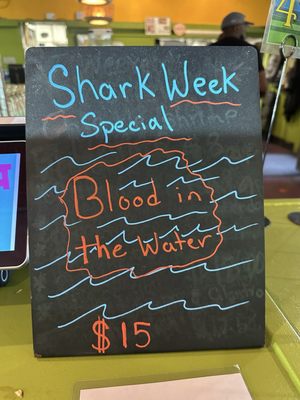 Shark Week
Special
Blood in
the Water
$15